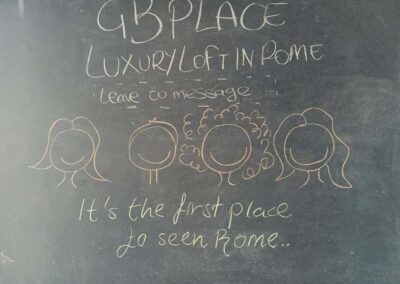 GB PLACE
LUXURY LOFT IN ROME
Leave to message
It's the first place
to seen Rome..